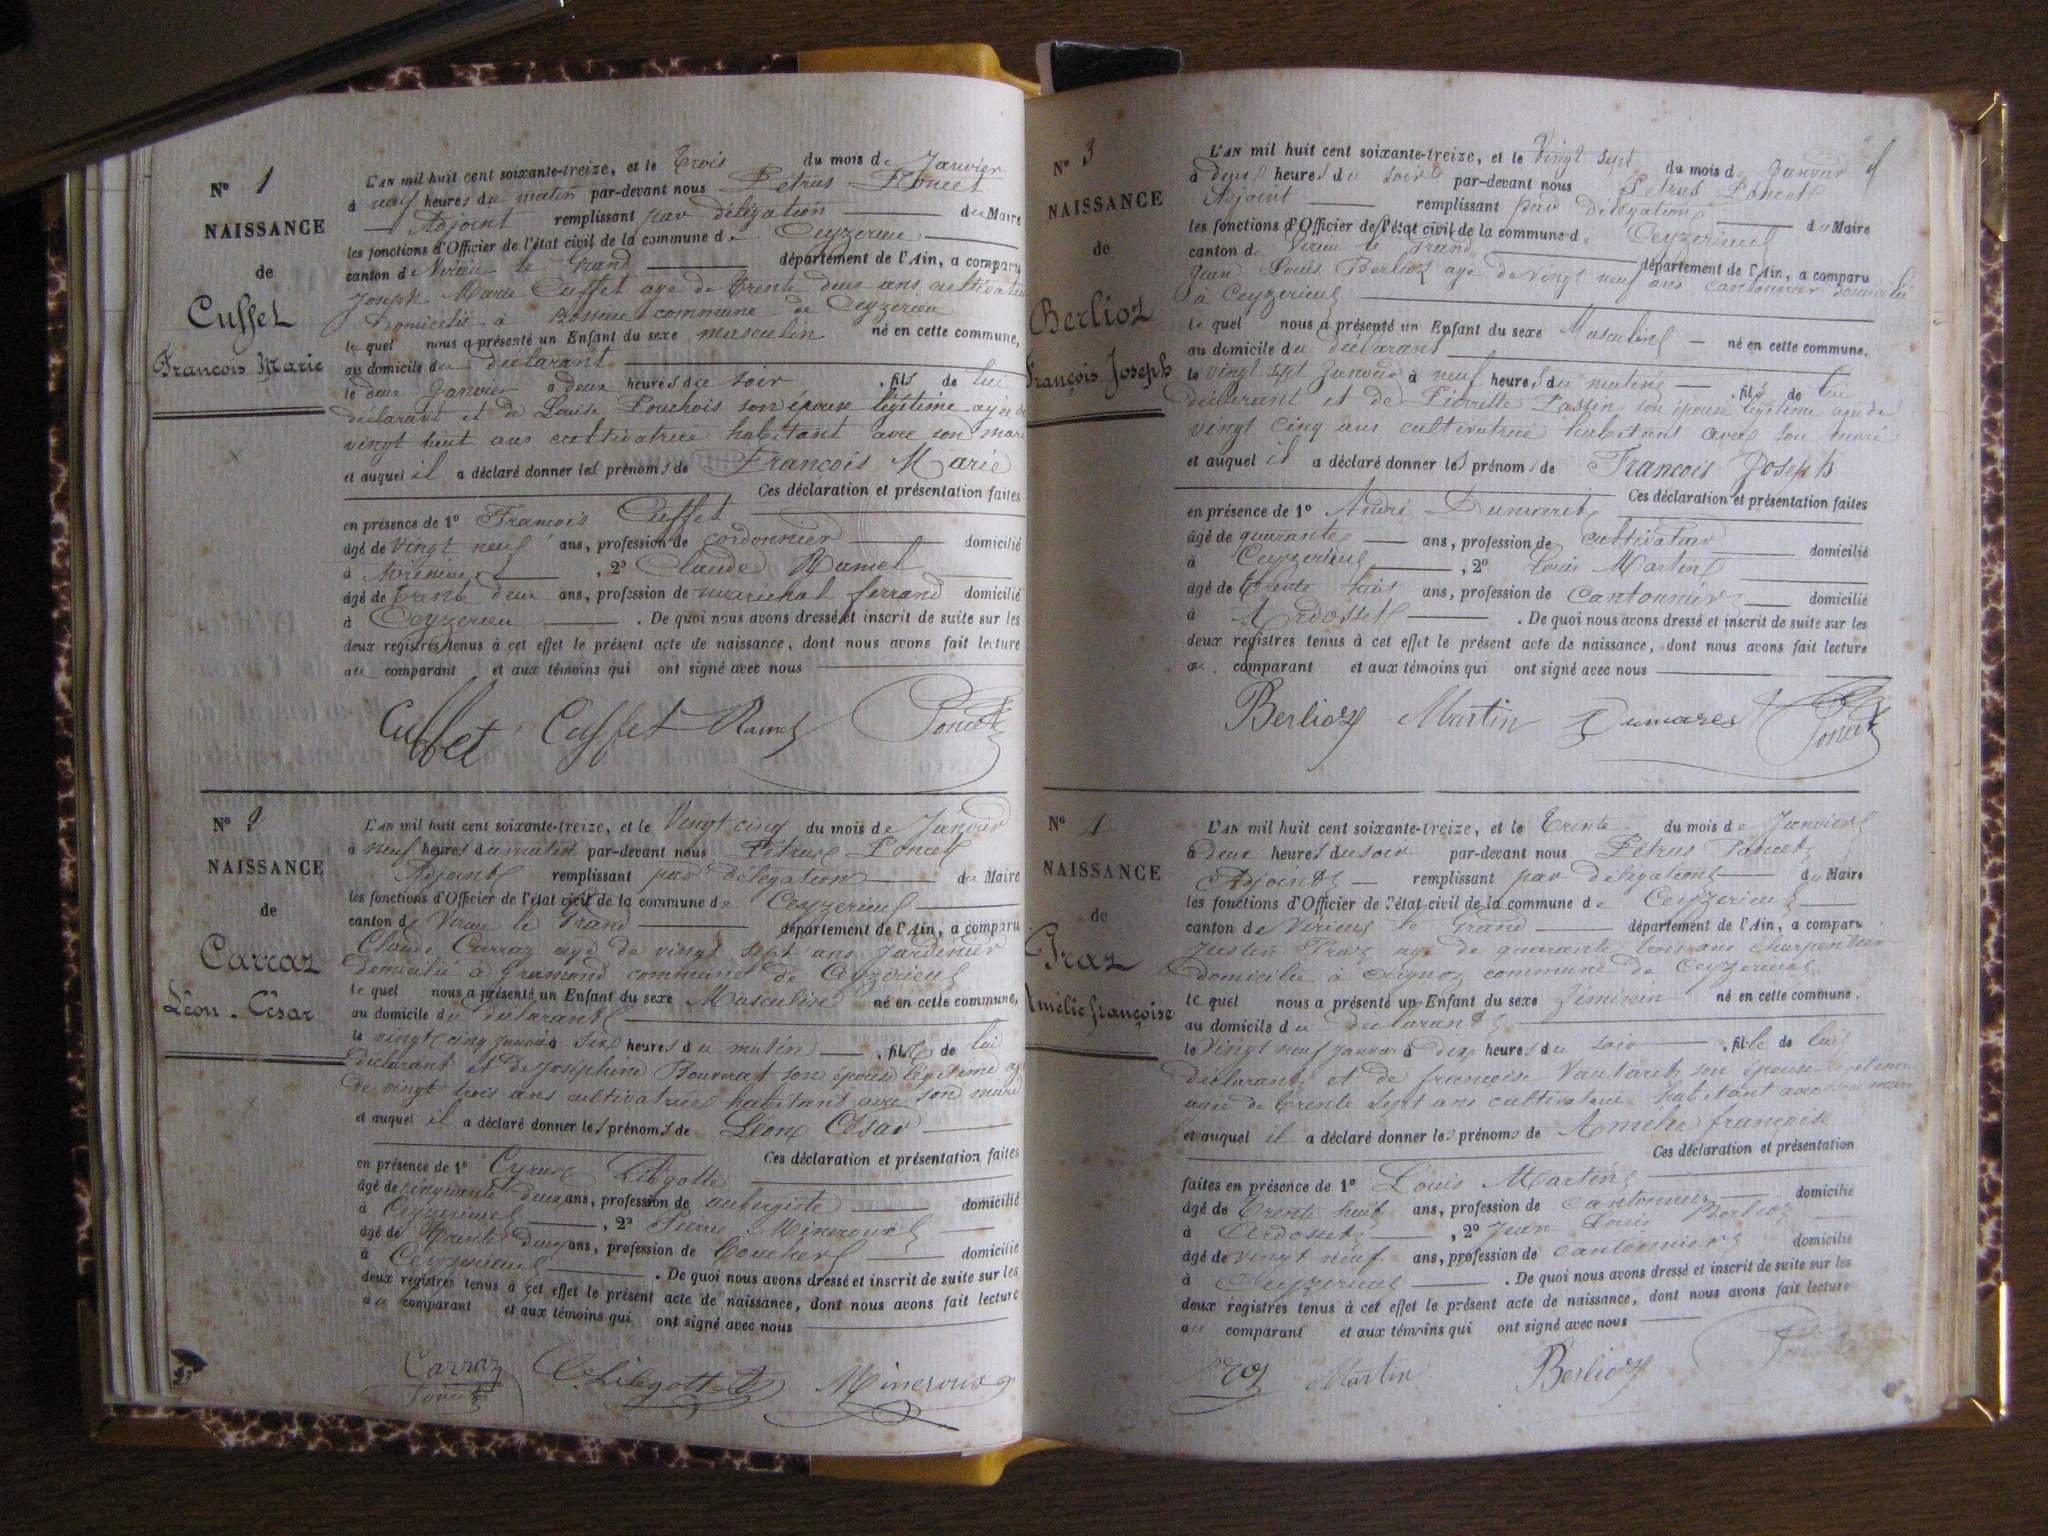 N° 1
NAISSANCE
de
Cuffet
François Marie
L'AN mil huit cent soixante-treize, et le Trois du mois de Janvier
à neuf heures du matin par-devant nous Pétrus Poncet
Adjoint remplissant par délégation du Maire
les fonctions d'Officier de l'état civil de la commune de Ceyzerieu
canton de Virieu le Grand département de l'Ain, a comparu
Joseph Marie Cuffet age de Trente deux ans cultivateur
domicilié à commune de Ceyzerieu
le quel nous a présenté un Enfant du sexe masculin né en cette commune,
au domicile du déclarant
le deux Janvier à deux heures du soir, fils de lui
déclarant et de Louise Pouchois son épouse légitime agée de
vingt huit ans cultivatrice habitant avec son mari
et auquel il a déclaré donner les prénoms de François Marie
Ces déclaration et présentation faites
en présence de 1° François Cuffet
âgé de vingt neuf ans, profession de cordonnier domicilié
à , 2° Claude Ramel
âgé de trente deux ans, profession de maréchal ferrand domicilié
à Ceyzerieu . De quoi nous avons dressé et inscrit de suite sur les
deux registres tenus à cet effet le présent acte de naissance, dont nous avons fait lecture
au comparant et aux témoins qui ont signé avec nous
Cuffet Cuffet Ramel Poncet
N° 2
NAISSANCE
de
Carraz
Léon - César
L'AN mil huit cent soixante-treize, et le Vingt cinq du mois de Janvier
à neuf heures du matin par-devant nous Pétrus Poncet
Adjoint remplissant par délégation du Maire
les fonctions d'Officier de l'état civil de la commune de Ceyzerieu
canton de Virieu le Grand département de l'Ain, a comparu
Claude Carraz agé de vingt sept ans Jardinier
domicilié à Gramond commune de Ceyzerieu
le quel nous a présenté un Enfant du sexe Masculin né en cette commune,
au domicile du déclarant
le vingt cinq janvier à six heures du matin , fils de lui
déclarant et de Joséphine Bouverat son épouse légitime agée
de vingt trois ans cultivatrice habitant avec son mari
et auquel il a déclaré donner les prénoms de Léon César
Ces déclaration et présentation faites
en présence de 1° Cyrus Libgotte
âgé de cinquante deux ans, profession de aubergiste domicilié
à Ceyzerieu , 2° Pierre Mineroux
âgé de Trente deux ans, profession de boucher domicilié
à Ceyzerieu . De quoi nous avons dressé et inscrit de suite sur les
deux registres tenus à cet effet le présent acte de naissance, dont nous avons fait lecture
au comparant et aux témoins qui ont signé avec nous
Carraz C. Libgotte Mineroux
Poncet
N° 3
NAISSANCE
de
Berlioz
François Joseph
L'AN mil huit cent soixante-treize, et le Vingt sept du mois de Janvier
à deux heures du soir par-devant nous Pétrus Poncet
Adjoint remplissant par délégation du Maire
les fonctions d'Officier de l'état civil de la commune de Ceyzerieu
canton de Virieu le Grand département de l'Ain, a comparu
Jean Louis Berlioz age de vingt neuf ans cantonnier domicilié
à Ceyzerieu
le quel nous a présenté un Enfant du sexe Masculin né en cette commune.
au domicile du déclarant
le vingt sept Janvier à neuf heures du matin , fils de lui
déclarant et de Pierrette Passin son épouse légitime agée de
vingt cinq ans cultivatrice habitant avec son mari
et auquel il a déclaré donner les prénoms de François Joseph
Ces déclaration et présentation faites
en présence de 1° André Dumarest
âgé de quarante ans, profession de cultivateur domicilié
à Ceyzerieu , 2° Louis Martin
âgé de trente huit ans, profession de Cantonnier domicilié
à Ardosset . De quoi nous avons dressé et inscrit de suite sur les
deux registres tenus à cet effet le présent acte de naissance, dont nous avons fait lecture
au comparant et aux témoins qui ont signé avec nous
Berlioz Martin Dumarest Poncet
N° 4
NAISSANCE
de
Praz
Amélie françoise
L'AN mil huit cent soixante-treize, et le Trente du mois de Janvier
à deux heures du soir par-devant nous Pétrus Poncet
Adjoint remplissant par délégation du Maire
les fonctions d'Officier de l'état civil de la commune de Ceyzerieu
canton de Virieu le Grand département de l'Ain, a comparu
Justin Praz age de quarante trois ans charpentier
domicilié à Aignoz commune de Ceyzerieu
le quel nous a présenté un Enfant du sexe féminin né en cette commune.
au domicile du déclarant
le vingt neuf janvier à dix heures du soir , fille de lui
déclarant et de françoise Vautaret son épouse légitime
agée de trente sept ans cultivatrice habitant avec son mari
et auquel il a déclaré donner les prénoms de Amélie françoise
Ces déclaration et présentation
faites en présence de 1° Louis Martin
âgé de trente huit ans, profession de cantonnier domicilié
à Ardosset , 2° Jean Louis Berlioz
âgé de vingt neuf ans, profession de cantonnier domicilié
à Ceyzerieu . De quoi nous avons dressé et inscrit de suite sur les
deux registres tenus à cet effet le présent acte de naissance, dont nous avons fait lecture
au comparant et aux témoins qui ont signé avec nous
Praz Martin Berlioz Poncet